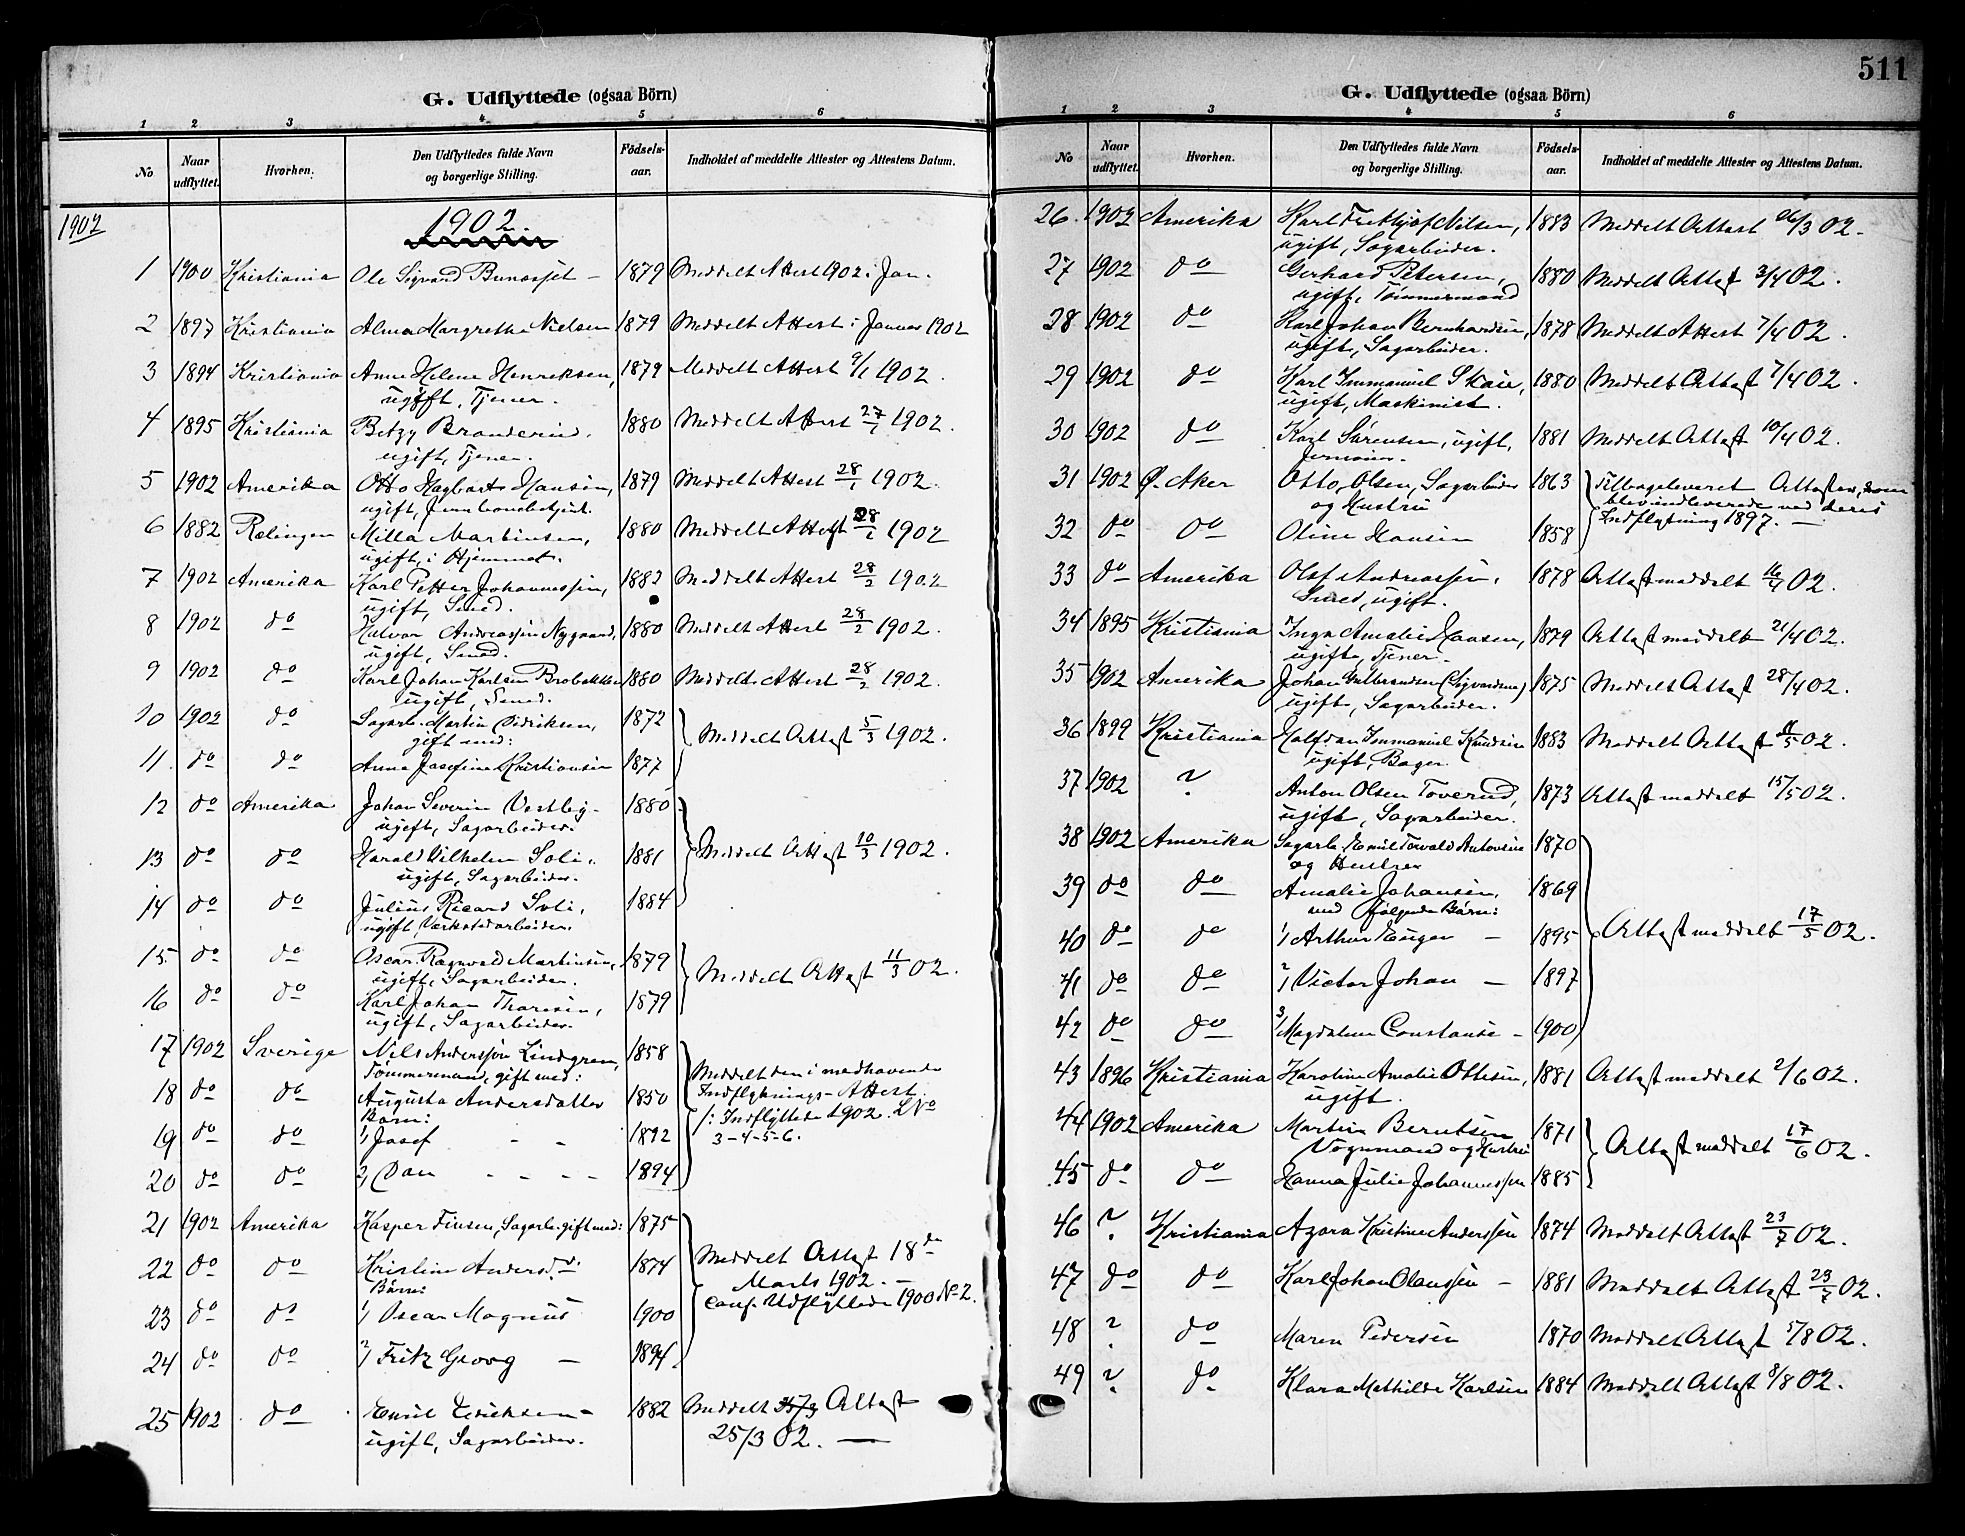 G. Udflyttede (ogsaa Börn)
1 2 3 4 5 6
No Naar udflyttet. Hvorhen. Den Udflyttedes fulde Navn og borgerlige Stilling. Födsels-aar. Indholdet af meddelte Attester og Attestens Datum.
1902 1902.
1 1900 Kristiania Ole Sigvard Bunæsset - 1879 Meddelt Attest 1902 i Jan.
2 1897 Kristiania Alma Margrethe Nielsen 1879 Meddelt Attest i Januar 1902
3 1894 Kristiania Anne Helene Henriksen, 1879 Meddelt Attest 9/1 1902.
ugift, Tjener.
4 1895 Kristiania Betzy Branderud. 1880 Meddelt Attest 27/1 1902.
ugift, Tjener.
5 1902 Amerika Otto Hagbart Hansen, 1879 Meddelt Attest 28/1 1902.
ugift,
6 1882 Rælingen Milla Martinsen, 1880 Meddelt Attest 28/1 1902
ugift, i Hjemmet.
7 1902 Amerika Karl Petter Johannessen, 1882 Meddelt Attest 28/2 1902
ugift, Smed.
8 1902 do Halvor Andreassen Nygaard, 1880 Meddelt Attest 28/2 1902.
ugift, Smed.
9 1902 do Karl Johan Karlsen Brobakken 1880 Meddelt Attest 28/2 1902.
ugift, Smed.
10 1902 do Sagarb. Martin Didriksen, 1872 Meddelt Attest 5/3 1902.
gift med:
11. do do Anna Josefine Kristiansen 1877
12 do Amerika Johan Severin Vestby - 1880
ugift, Sagarbeider.
13 do do Harald Vilhelm Soli, 1881 Meddelt Attest 10/3 1902.
ugift, Sagarbeider.
14 do do Julius Ricard Soli, 1884
ugift, Værkstedarbeider.
15. do do Oscar Ragnvald Martinsen, 1879 Meddelt Attest 11/3 02.
ugift, Sagarbeider.
16 do do Karl Johan Thoresen, 1879
ugift, Sagarbeider.
17 1902 Sverige Nils Anderssøn Lindgren, 1858
Tømmermand, gift med:
18 do do Augusta Andersdatter 1850
Børn:
19 do do 1) Josef - - 1892
20 do do 2) Dan - - - - 1894
Meddelt den i medhavende
Indflytnings-Attest
f: Indflyttede 1902. LNo
3-4-5-6.
21 1902 Amerika Kasper Finsen, Sagarb. gift med: 1875
22 do do Kristine Andersd. 1874
Børn:
23 do do 1) Oscar Magnus 1900
24 do do 2) Fritz Georg - 1894
Meddelt Attest 18de
Marts 1902. -
conf. Udflyttede 1900 No 2.
25 1902 do Emil Eriksen - 1882 Meddelt 25/3 Attest
ugift, Sagarbeider. 25/3 02. -
511
G. Udflyttede (ogsaa Börn)
1 2 3 4 5 6
No Naar udflyttet. Hvorhen. Den Udflyttedes fulde Navn og borgerlige Stilling. Födsels-aar. Indholdet af meddelte Attester og Attestens Datum.
26. 1902 Amerika Karl Fridthjof Nilsen, 1883 Meddelt Attest 26/3 02.
ugift, Sagarbeider.
27 1902 do Gerhard Petersen, 1880 Meddelt Attest 3/4 02.
ugift, Tømmermand
28 1902 do Karl Johan Bernhardsen, 1878 Meddelt Attest 7/4 02.
ugift, Sagarbeider.
29 1902 do Karl Immanuel Skaie, 1880 Meddelt Attest 7/4 02.
ugift, Maskinist.
30 1902 do Karl Sørensen, ugift, 1881 Meddelt Attest 10/4 02.
31 1902 Ø. Aker Otto Olsen, Sagarbeider 1863
og Hustru
32 do do Oline Hansen 1858
Tilbageleveret Attester, som
blev indleverede ved deres
Indflytning 1897. -
33 do Amerika Olaf Andreassen, 1878 Attest meddelt 16/4 02.
Smed, ugift.
34 1895 Kristiania Inga Amalie Hansen, 1879 Attest meddelt 21/4 02.
ugift, Tjener.
35 1902 Amerika Johan Gulbrandsen (Sigvardsen) 1875 Meddelt Attest 28/4 02.
ugift, Sagarbeider.
36 1899 Kristiania Halfdan Immanuel Knudsen 1883 Meddelt Attest /5 02.
ugift, Bager.
37 1902 ? Anton Olsen Toverud, 1873 Attest meddelt 15/5 02.
ugift, Sagarbeider.
38 1902 Amerika Sagarb. Emil Torvald Antonsen 1870
og Hustru
39 do do Amalie Johansen, 1869
med følgende Børn:
40 do do 1) Arthur Eugen - 1895 Attest meddelt 17/5 02.
41 do do 2) Victor Johan - 1897
42 do do 3) Magdalene Constanse - 1900
43 1896 Kristiania Karoline Amalie Ottesen, 1881 Attest meddelt 2/6 02.
ugift.
44 1902 Amerika Martin Berntsen 1871 Attest meddelt 17/6 02.
Vognmand og Hustru
45 do do Hanna Julie Johannessen 1885
46 ? Kristiania Agora Kristine Anderssen 1874 Meddelt Attest 23/7 02.
47 do do Karl Johan Olaussen - 1881 Meddelt Attest 23/7 02.
48 ? do Maren Pedersen 1870 Meddelt Attest 5/8 02.
49 ? do Klara Mathilde Karlsen 1884 Meddelt Attest 8/8 02.